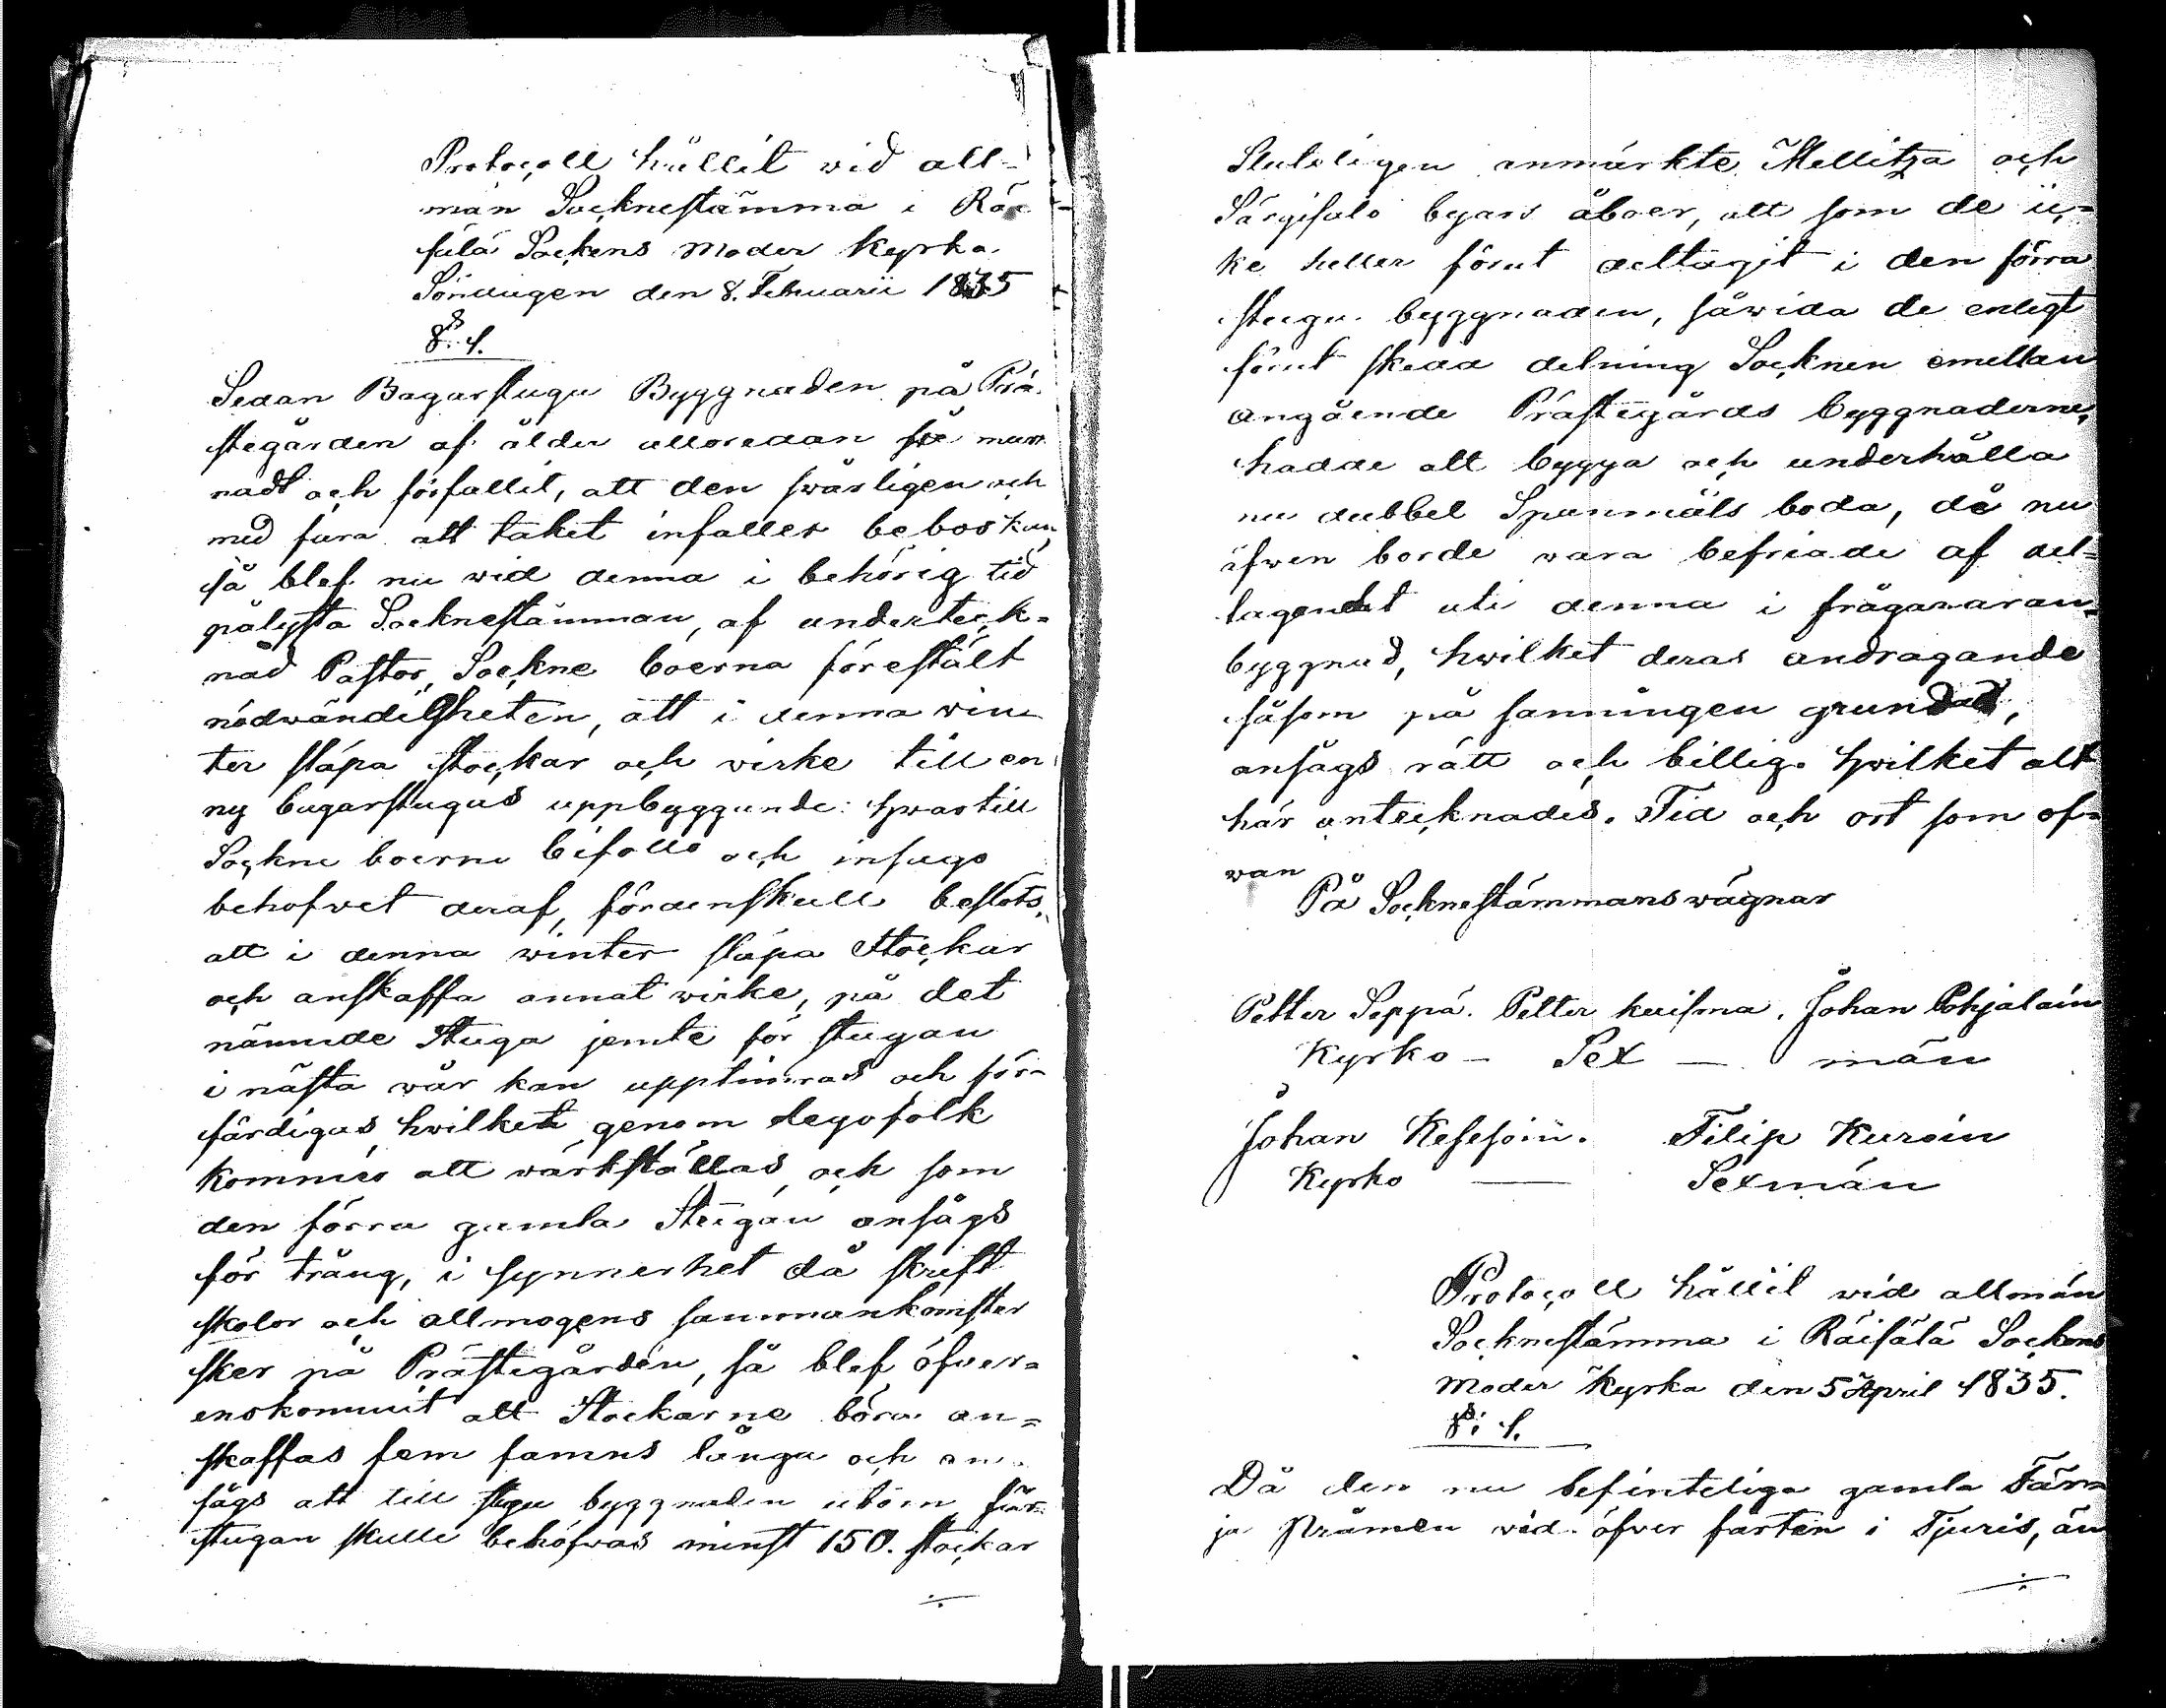 Protocoll hållit wid all-
män Socknestämma i Räi-
sälä Sockens Moder Kyrka
Söndagen den 8. Februarii 1835
§ 1.
Sedan Bagarstugu Byggnaden på Prä-
stegården af ålder alloredan så murk
nadt och förfallit, att den swårligen och
med fara att taket infaller bebos kan,
så blef nu wid denna i behörig tid
pålysta Socknestämman, af undertek-
nad Pastor, Sockne boerna förestält
nödwändigheten, att i denna win
ter släpa stockar och virke till en
ny bagarstugas uppbyggande: hwartill
Sockne boerne biföllo och insågo
behofvet deraf, fördenskull beslöts,
att i denna winter släpa Stockar
och anskaffa annat wirke, på det
nämnde Stuga jemte för stugan
i nästa wår kan upptimras och för-
färdigas, hwilket genom legofolk
kommer att wärkställas, och som
den förra gamla Stugan ansågs
för trång, i synnerhet då skrift
skolor och allmogens sammankomster
sker på Prästegården, så blef öfver-
enskommit att Stockarne böra an-
skaffas fem famns långa och an-
sågs att till stugu byggnaden utom för-
stugan skulle behöfvas minst 150. stockar
÷
Sluteligen anmärkte Mellitza och
Särgisalo byars åboer, att som de ic-
ke heller förut deltagit i den förra
stugu byggnaden, såwida de enligt
förut skedd delning Socknen emellan
angående Prästegårds byggnaderne,
hadde att bygga och underhålla
en dubbel Spanmåls boda, de nu
äfwen borde wara befriade af del-
tagendet uti denna i frågawaran-
byggnad, hwilket deras andragande
såsom på sanningen grundad,
ansågs rätt och billig. Hwilket alt
här antecknades. Tid och ort som of-
wan
På Socknestämmans wägnar
Petter Seppä. Petter kuisma. Johan Pohjalain
Kyrko - Sex - män
Johan Kesesoin. Filip Kuroin
Kyrko - Sexmän
Protocoll hållit wid allmän
Socknestämma i Räisälä Sockens
Moder Kyrka den 5 April 1835.
§ 1.
Då den nu befinteliga gamla Fär-
ja Pråmen wid öfver farten i Tjuris, än
÷